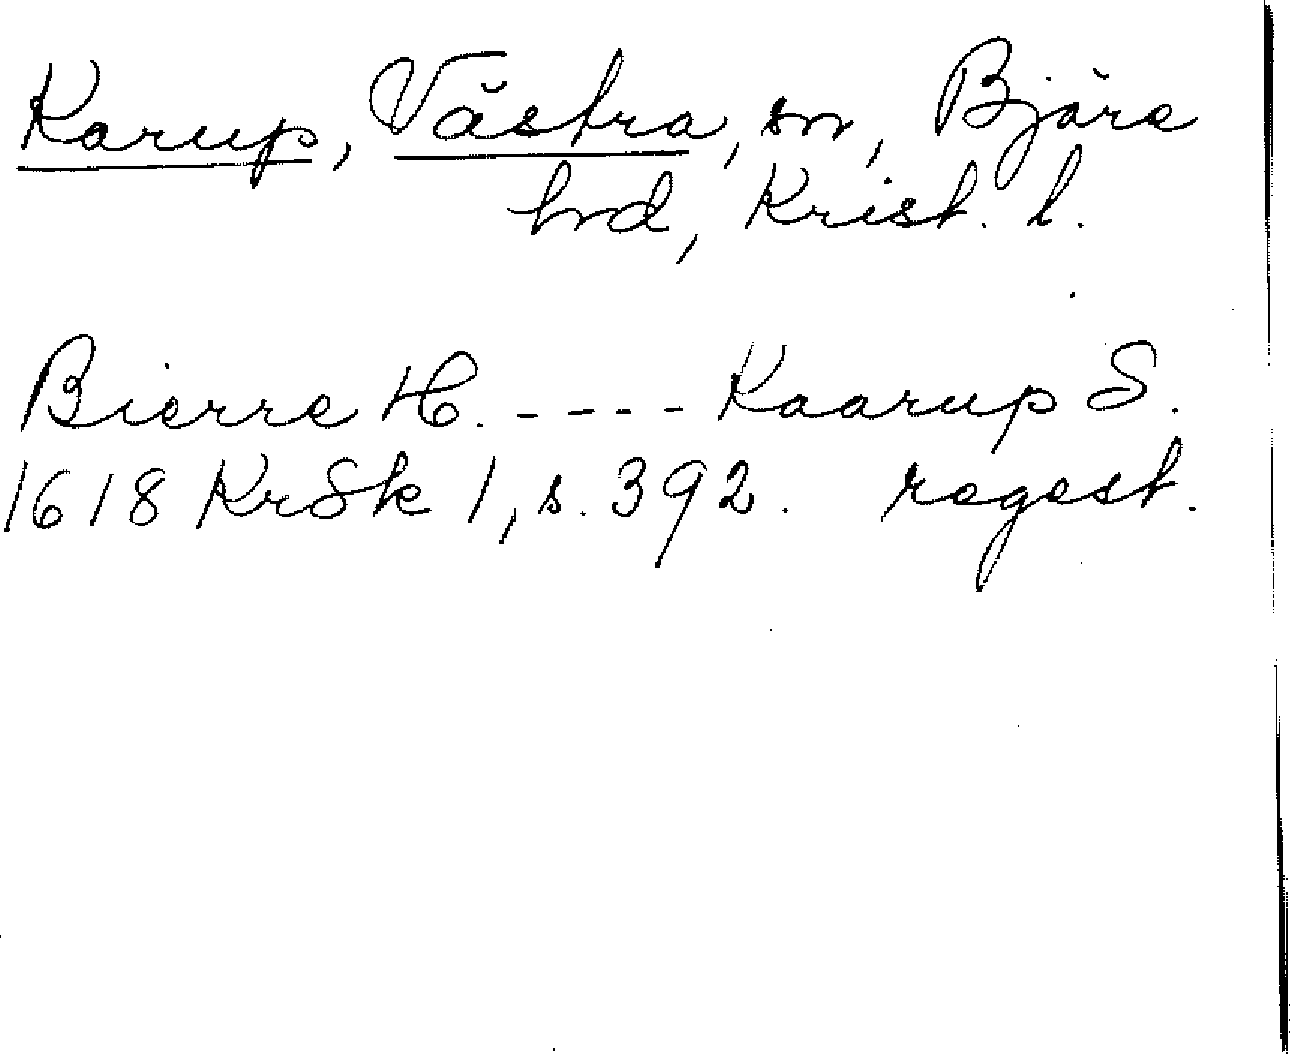 Karup, Västra, sn, Bjäre
hrd, Krist. l.
Bierre H. ---- Kaarup S.
1618 KrSk 1, s. 392. regest.